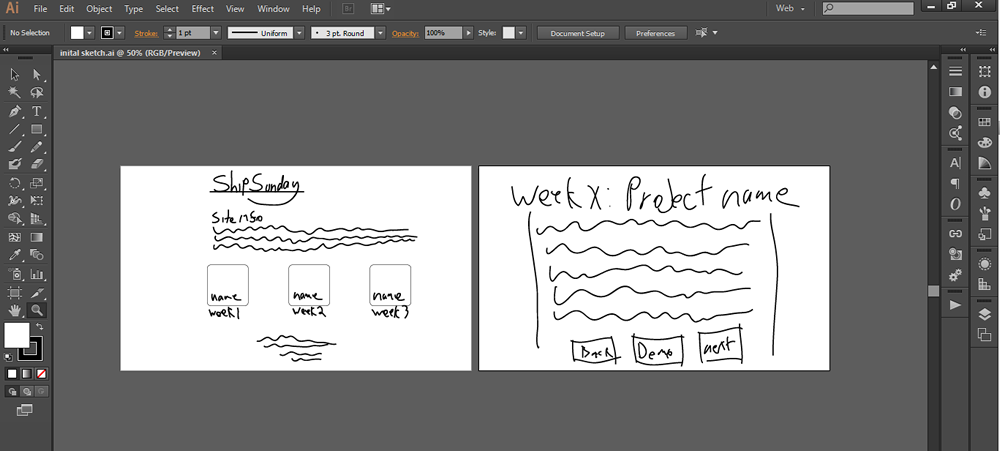 Ai File Edit Object Type Select Effect View Window Help Br Web
No Selection Stroke: 1 pt Uniform 3 pt. Round Opacity: 100% Style: Document Setup Preferences
inital sketch.ai @ 50% (RGB/Preview) ×
ShipSunday
Site info
name name name
week1 week2 week3
Week X: Project name
Back Demo next